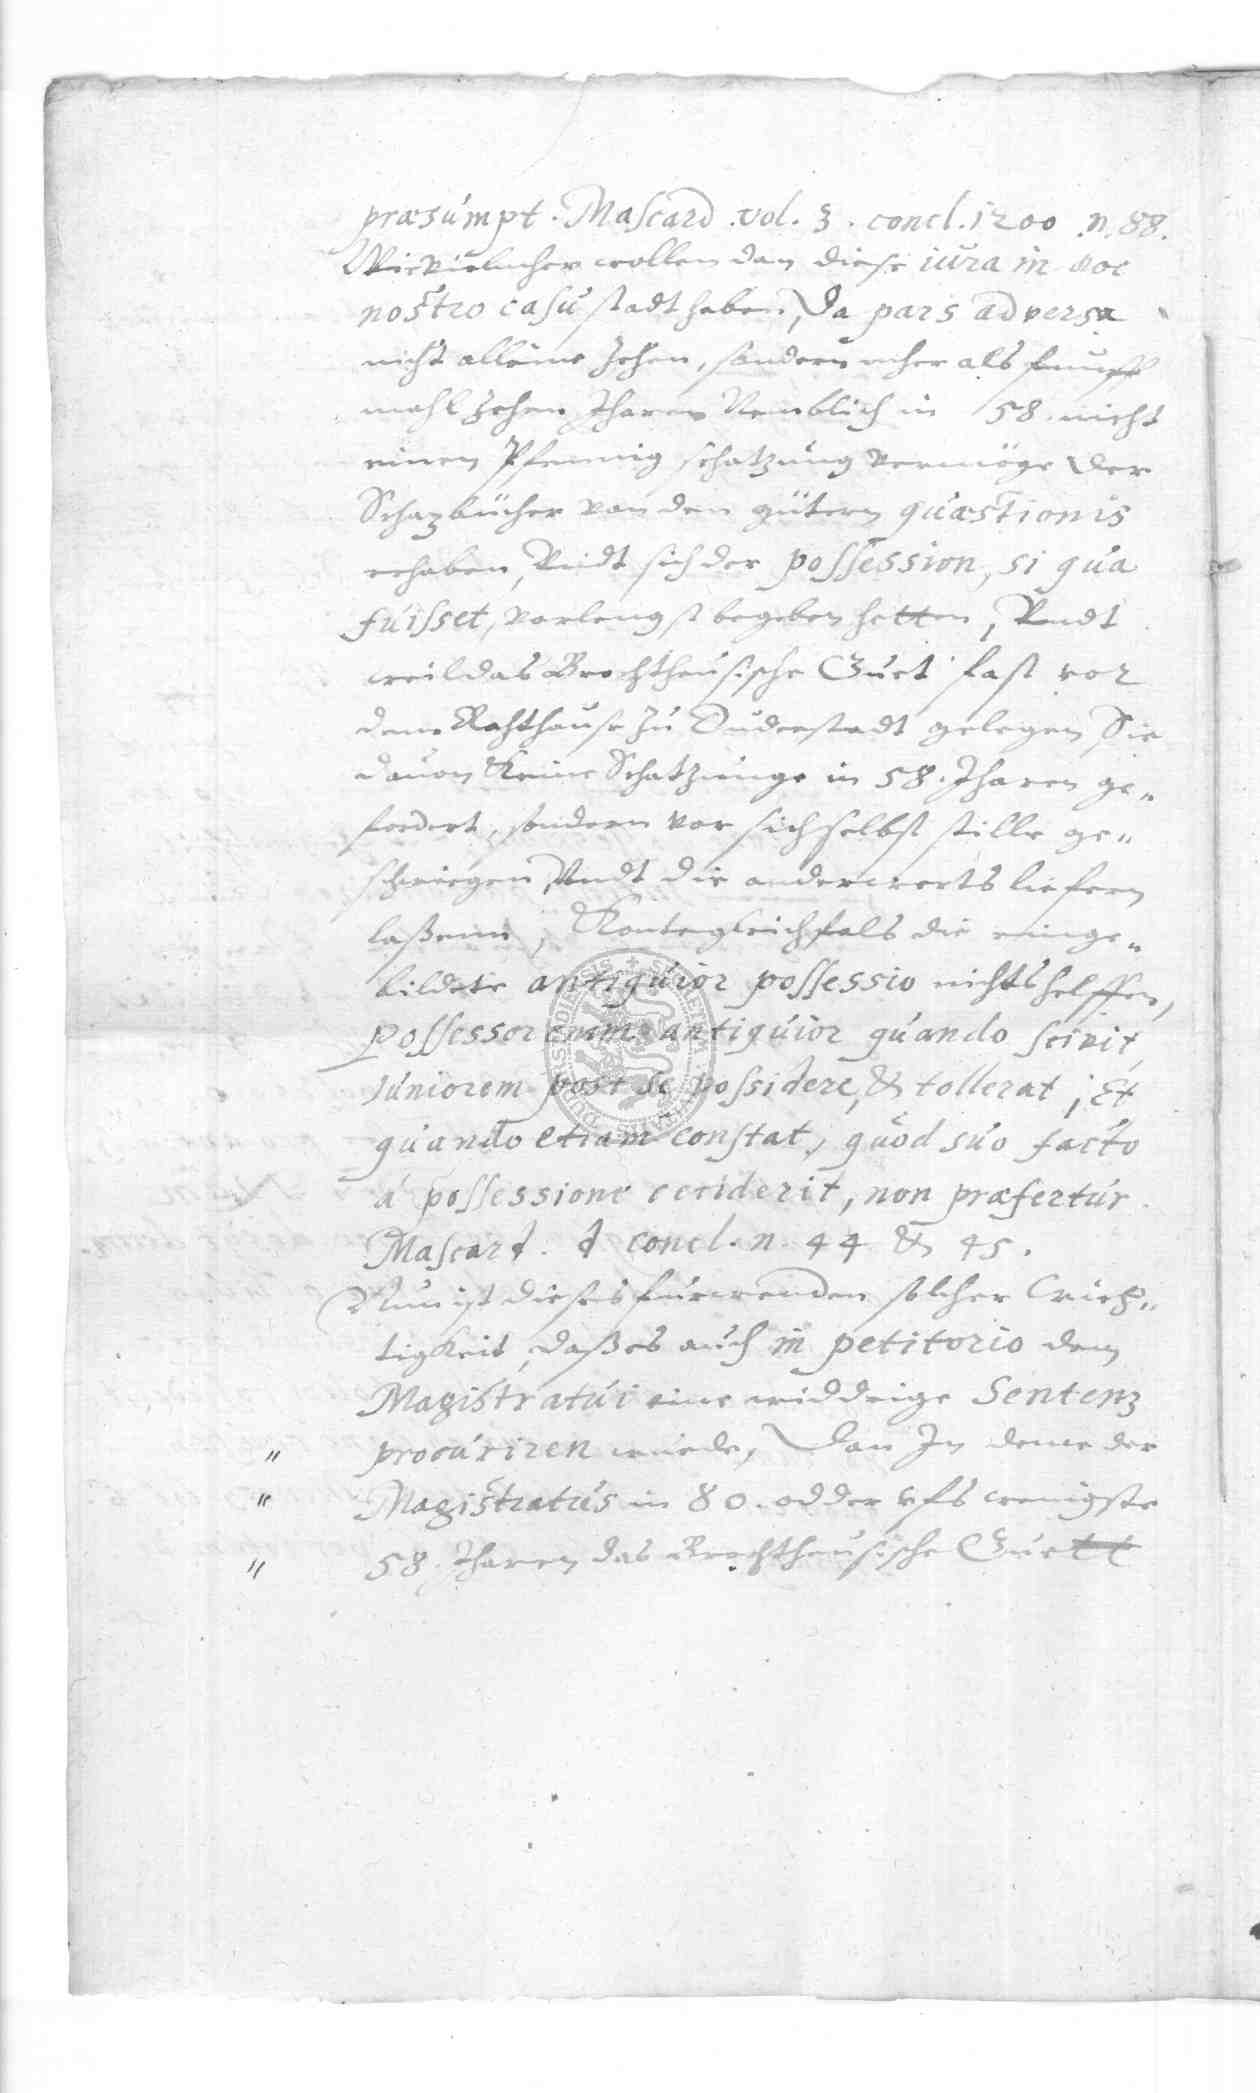 præsumpt. Mascard. vol. 3. concl. 1200 n. 88.
Wievielmeher wollen dan diese iura in hoc
nostro casu stadt haben, Da pars adversa
nicht alleine zehen, sondern meher als funff
mahl zehen Jharen Nemblich in 58. nicht
einen Pfennig schatzung vermöge der
Schazbücher von den gütern quæstionis
erhaben, Undt sich der possession, si qua
fuisset, vorlengst begeben hetten, Undt
weil das Brochtheusische Guet fast vor
dem Rahthause zu Duderstadt gelegen, Sie
davon keine Schatzunge in 58. Jharen ge„
fordert, sondern vor sich selbst stille ge„
schwiegen Undt die anderwerts liefern
laßenn, Konte gleichfals die einge„
bildete antiquior possessio nichts helffen,
Possessor enim antiquior quando scivit
Juniorem post se possidere, & tollerat, Et
quando etiam constat, quòd suo facto
à possessione ceciderit, non præfertur
Mascard. d. concl. n. 44 & 45.
Nun ist dieses furwenden solcher Wich„
tigkeit, daß es auch in petitorio dem
Magistratui eine widdrige Sentenz
„ procuriren wurde, Dan In deme der
„ Magistratus in 80. odder ufs wenigste
„ 58. Jharen das Brochtheusische Guett